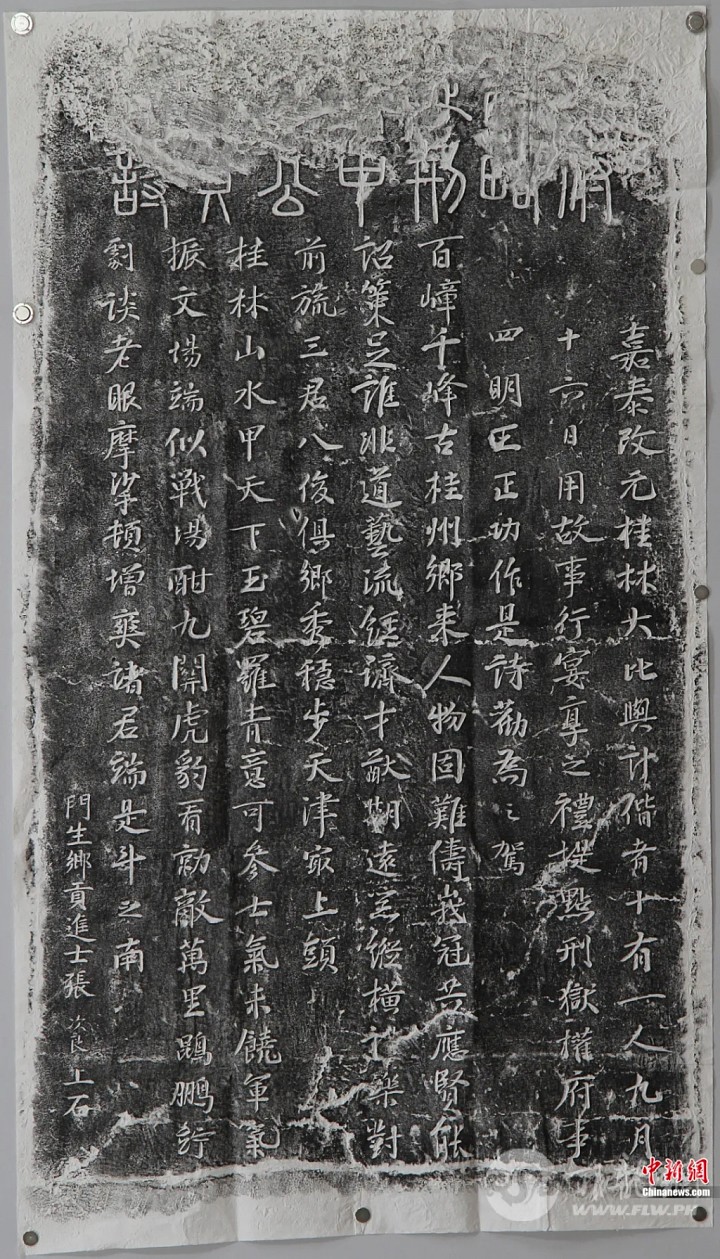 嘉泰改元桂林大比與計偕者十有一人九月
十六日用故事行宴享之禮提點刑獄權府事
四明王正功作是詩勸為之駕
百嶂千峰古桂州鄉來人物固難儔峩冠共應賢能
詔策足誰非道藝流經濟才猷期遠器縱橫礼樂對
前旒三君八俊俱鄉秀穩步天津最上頭
桂林山水甲天下玉碧羅青意可參士氣未饒軍氣
振文場端似戰場酣九關虎豹看勍敵萬里鵾鵬佇
劇談老眼摩挲頓增爽諸君端是斗之南
門生鄉貢進士張次良上石
中新網
Chinanews.com
WWW.FLW.PH